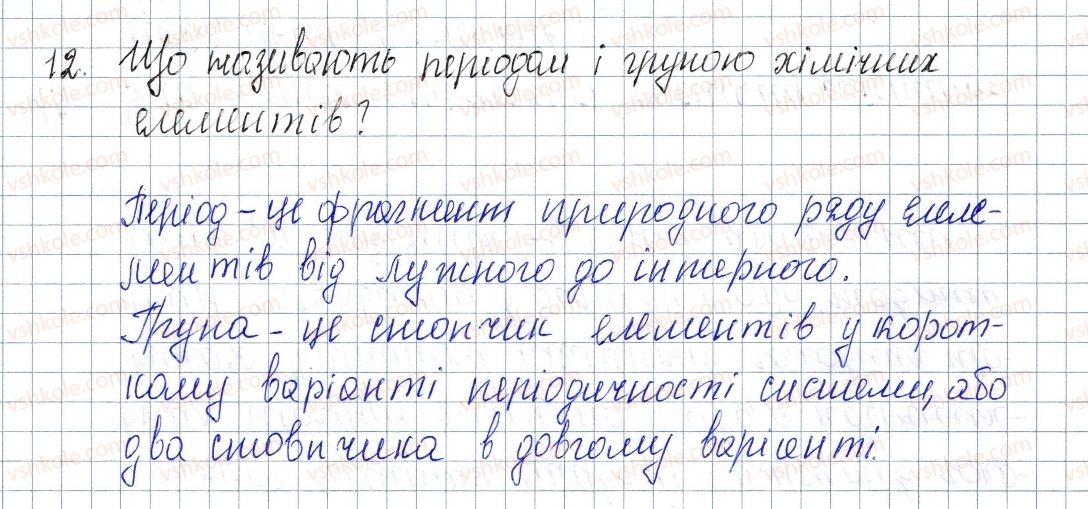 12. Що називають періодом і групою хімічних
елементів?
Період - це фрагмент природного ряду еле-
ментів від лужного до інтерного.
Група - це стопчик елементів у корот-
кому варіанті періодичності системи, або
два стовпчика в довгому варіанті.